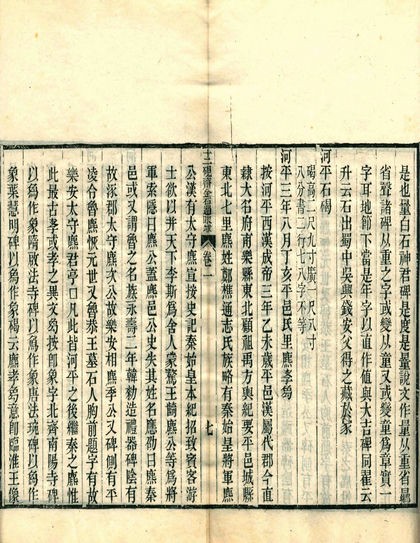 是也量白石神君碑是度是量說文作量从重省曏
省聲諸碑从重之字或變从童又或變童爲章實一
字耳地節下當是年字以直作値與大吉碑同翟云
升云石出蜀中吳興錢安父得之藏於家
河平石碣
碣高二尺九寸廣一尺八寸
八分書二行七八字不等
河平三年八月丁亥平邑民里麃孝
按河平西漢成帝三年乙未歲平邑漢屬代郡今直
隸大名府南樂縣東北顧祖禹方輿紀要平邑城縣
東北七里麃姓鄭樵通志氏族略有秦始皇將軍麃
十二硯齋金石過眼錄 卷一 七
公漢有太守麃宣按史記秦始皇本紀招致賓客游
士欲以幷天下李斯爲舍人蒙驁王齮麃公等爲將
軍索隱曰麃公蓋麃邑公史失其姓名應劭曰麃秦
邑或又謂魯之名族永壽二年韓勑造禮器碑陰有
故涿郡太守麃次公故樂安相麃季公又碑側有平
淩令魯麃恢元世又魯恭王墓石人胸前題字有故
樂安太守麃君亭口凡此皆河平之後繼秦之麃惟
此最古孝或孝之異文按卽象字北齊南陽寺碑
以爲作象隋啟法寺碑以爲作象唐法琬碑以爲作
象葉慧明碑以爲作象碣云麃孝意卽臨淮王像